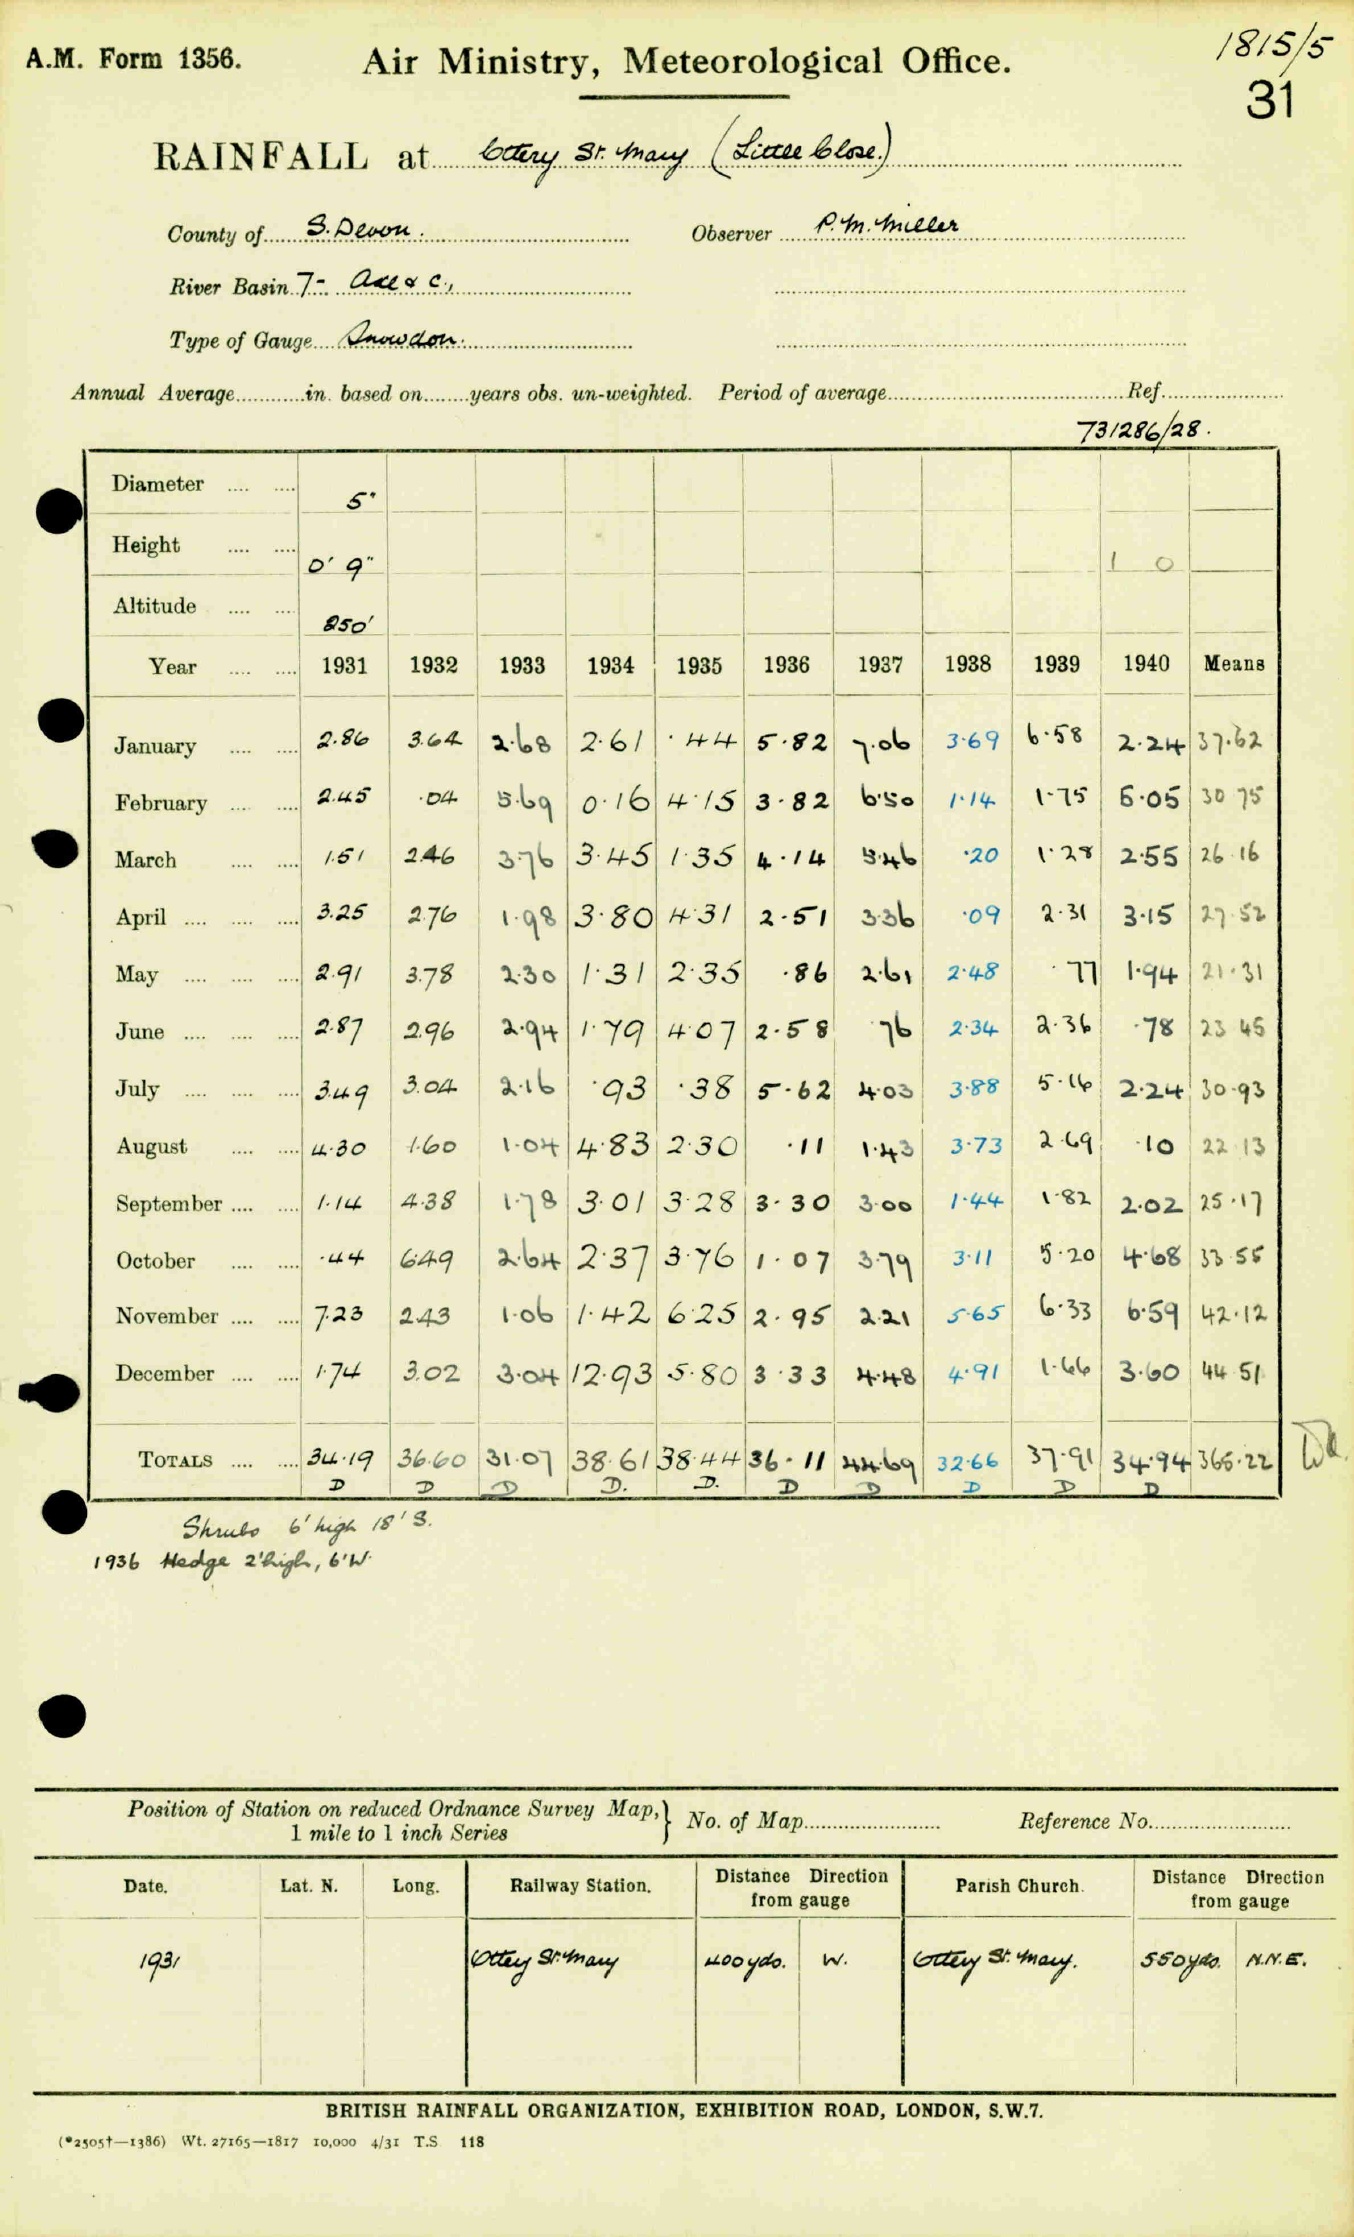 A.M. Form 1356.
Air Ministry, Meteorological Office.
1815/5
31
RAINFALL at Ottery St. Mary (Little Close.)
County of S. Devon. Observer P.M. Miller
River Basin 7- Axe & c.,
Type of Gauge Snowdon.
Annual Average in. based on years obs. un-weighted. Period of average Ref.
731286/28.
Diameter 5"
Height 0' 9" 1 0
Altitude 250'
Year 1931 1932 1933 1934 1935 1936 1937 1938 1939 1940 Means
January 2.86 3.64 2.68 2.61 .44 5.82 7.06 3.69 6.58 2.24 37.62
February 2.45 .04 5.69 0.16 4.15 3.82 6.50 1.14 1.75 5.05 30 75
March 1.51 2.46 3.76 3.45 1.35 4.14 5.46 .20 1.28 2.55 26.16
April 3.25 2.76 1.98 3.80 4.31 2.51 3.36 .09 2.31 3.15 27.52
May 2.91 3.78 2.30 1.31 2.35 .86 2.61 2.48 .77 1.94 21.31
June 2.87 2.96 2.94 1.79 4.07 2.58 76 2.34 2.36 .78 23 45
July 3.49 3.04 2.16 .93 .38 5.62 4.03 3.88 5.16 2.24 30.93
August 4.30 1.60 1.04 4.83 2.30 .11 1.43 3.73 2.69 .10 22 13
September 1.14 4.38 1.78 3.01 3.28 3.30 3.00 1.44 1.82 2.02 25.17
October .44 6.49 2.64 2.37 3.76 1.07 3.79 3.11 5.20 4.68 33 55
November 7.23 2.43 1.06 1.42 6.25 2.95 2.21 5.65 6.33 6.59 42.12
December 1.74 3.02 3.04 12.93 5.80 3.33 4.48 4.91 1.66 3.60 44 51
TOTALS 34.19 36.60 31.07 38.61 38.44 36.11 44.69 32.66 37.91 34.94 365.22
D D D D. D. D D D D D
Shrubs 6' high 18' S.
1936 Hedge 2' high, 6' W.
Position of Station on reduced Ordnance Survey Map,} No. of Map Reference No.
1 mile to 1 inch Series
Date. Lat. N. Long. Railway Station. Distance Direction from gauge Parish Church. Distance Direction from gauge
1931 Ottery St. Mary 400 yds. W. Ottery St. Mary. 550 yds. N.N.E.
BRITISH RAINFALL ORGANIZATION, EXHIBITION ROAD, LONDON, S.W.7.
(*2505†—1386) Wt. 27165—1817 10,000 4/31 T.S 118